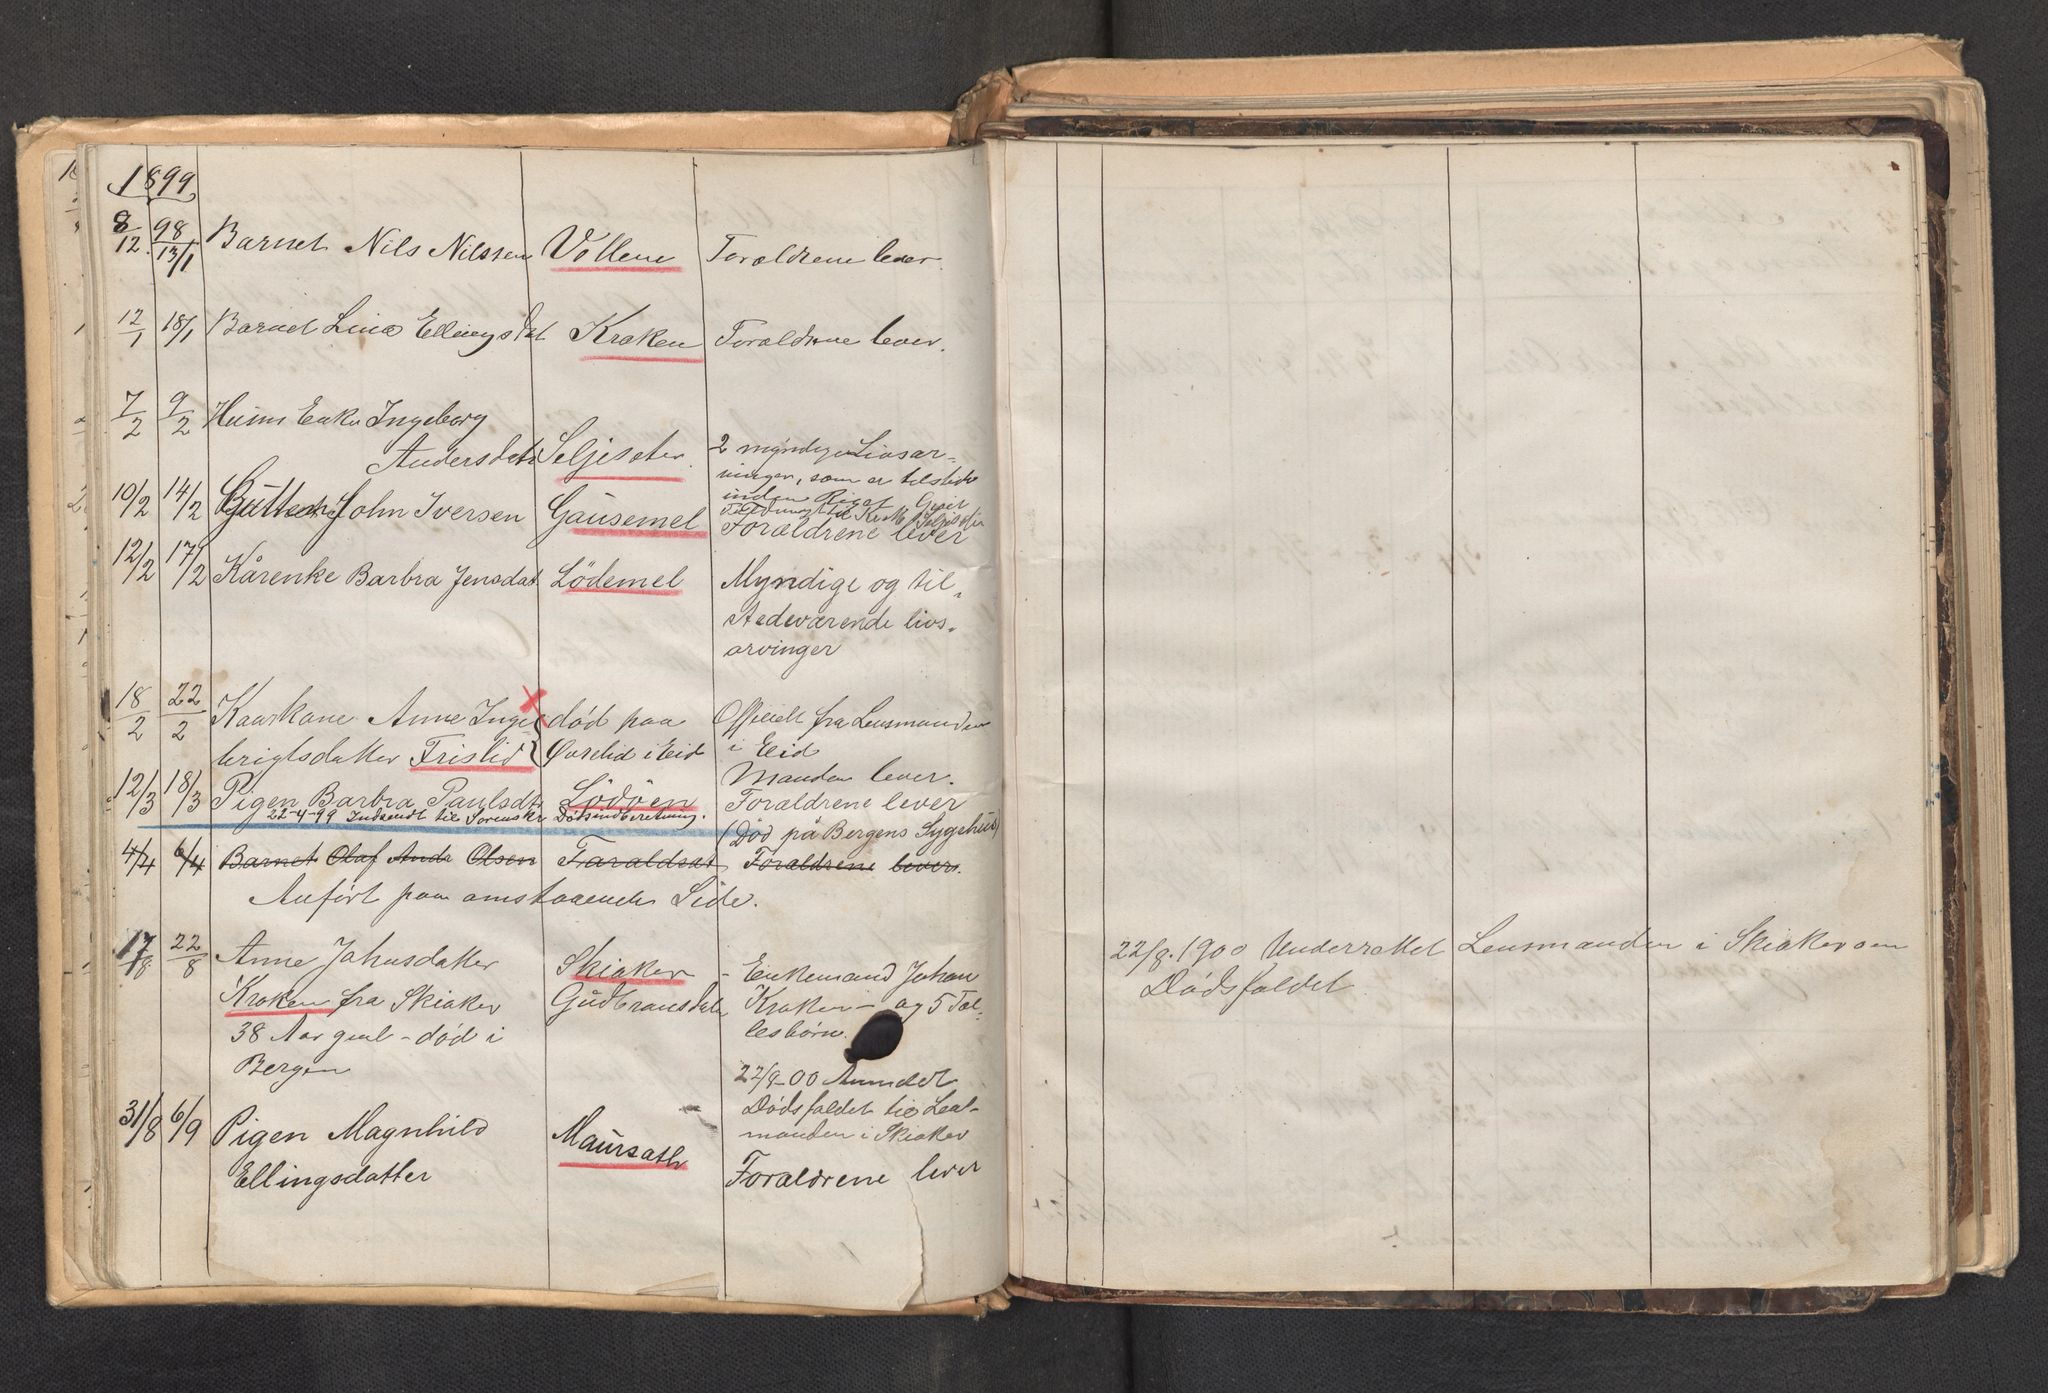 1899
8/12 98 13/1 Barnet Nils Nilssen Vollene Forældrene lever.
12/1 18/1 Barnet Lina Ellingsdat Kroken Forældrene lever.
7/2 9/2 Huusm Enke Ingeborg
Andersdatr Seljeseter 2 myndige Livsar-
vinger, som er tilstede
inden Riget
10/2 14/2 Gutten John Iversen Gausemel Forældrene lever
12/2 17/2 Kårenke Barbra Jensdat Lödemel Myndige og til-
stedeværende livs-
arvinger
18/2 22/2 Kaarkone Anne Inge død paa Officielt fra Lensmanden
brigtsdatter Fristid Øvrelid i Eid i Eid
Manden lever.
12/3 18/3 Pigen Barbra Paulsdtr Lödöen Forældrene lever
22-4-99 Indsendt til Sorenskr Dødsindberetning.
(Død på Bergens Sygehus)
4/4 6/4 Barnet Olaf Andr Olsen Taraldsat Forældrene lever.
Anført paa omstaaende Side.
17/8 22/8 Anne Johnsdatter Skiaker - Enkemand Johan
Kroken fra Skiaker Gudbransdalen Kroken - og 5 Fæl-
38 Aar gml - død i lesbørn.
Bergen
22/9-00 Anmeldt
Dødsfaldet til Lens-
manden i Skiaker
31/8 6/9 Pigen Magnhild Maursæth Forældrene lever
Ellingsdatter
22/9. 1900 Underrettet Lensmanden i Skiaker om
Dødsfaldet.